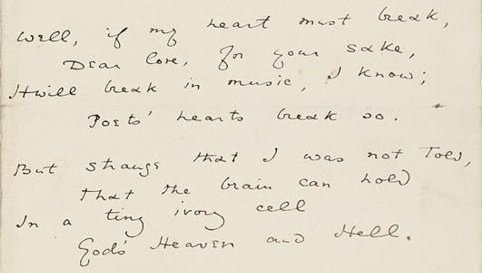 Well, if my heart must break,
Dear love, for your sake,
It will break in music, I know;
Poets' hearts break so.
But strange that I was not told,
That the brain can hold
In a tiny ivory cell
God's Heaven and Hell.